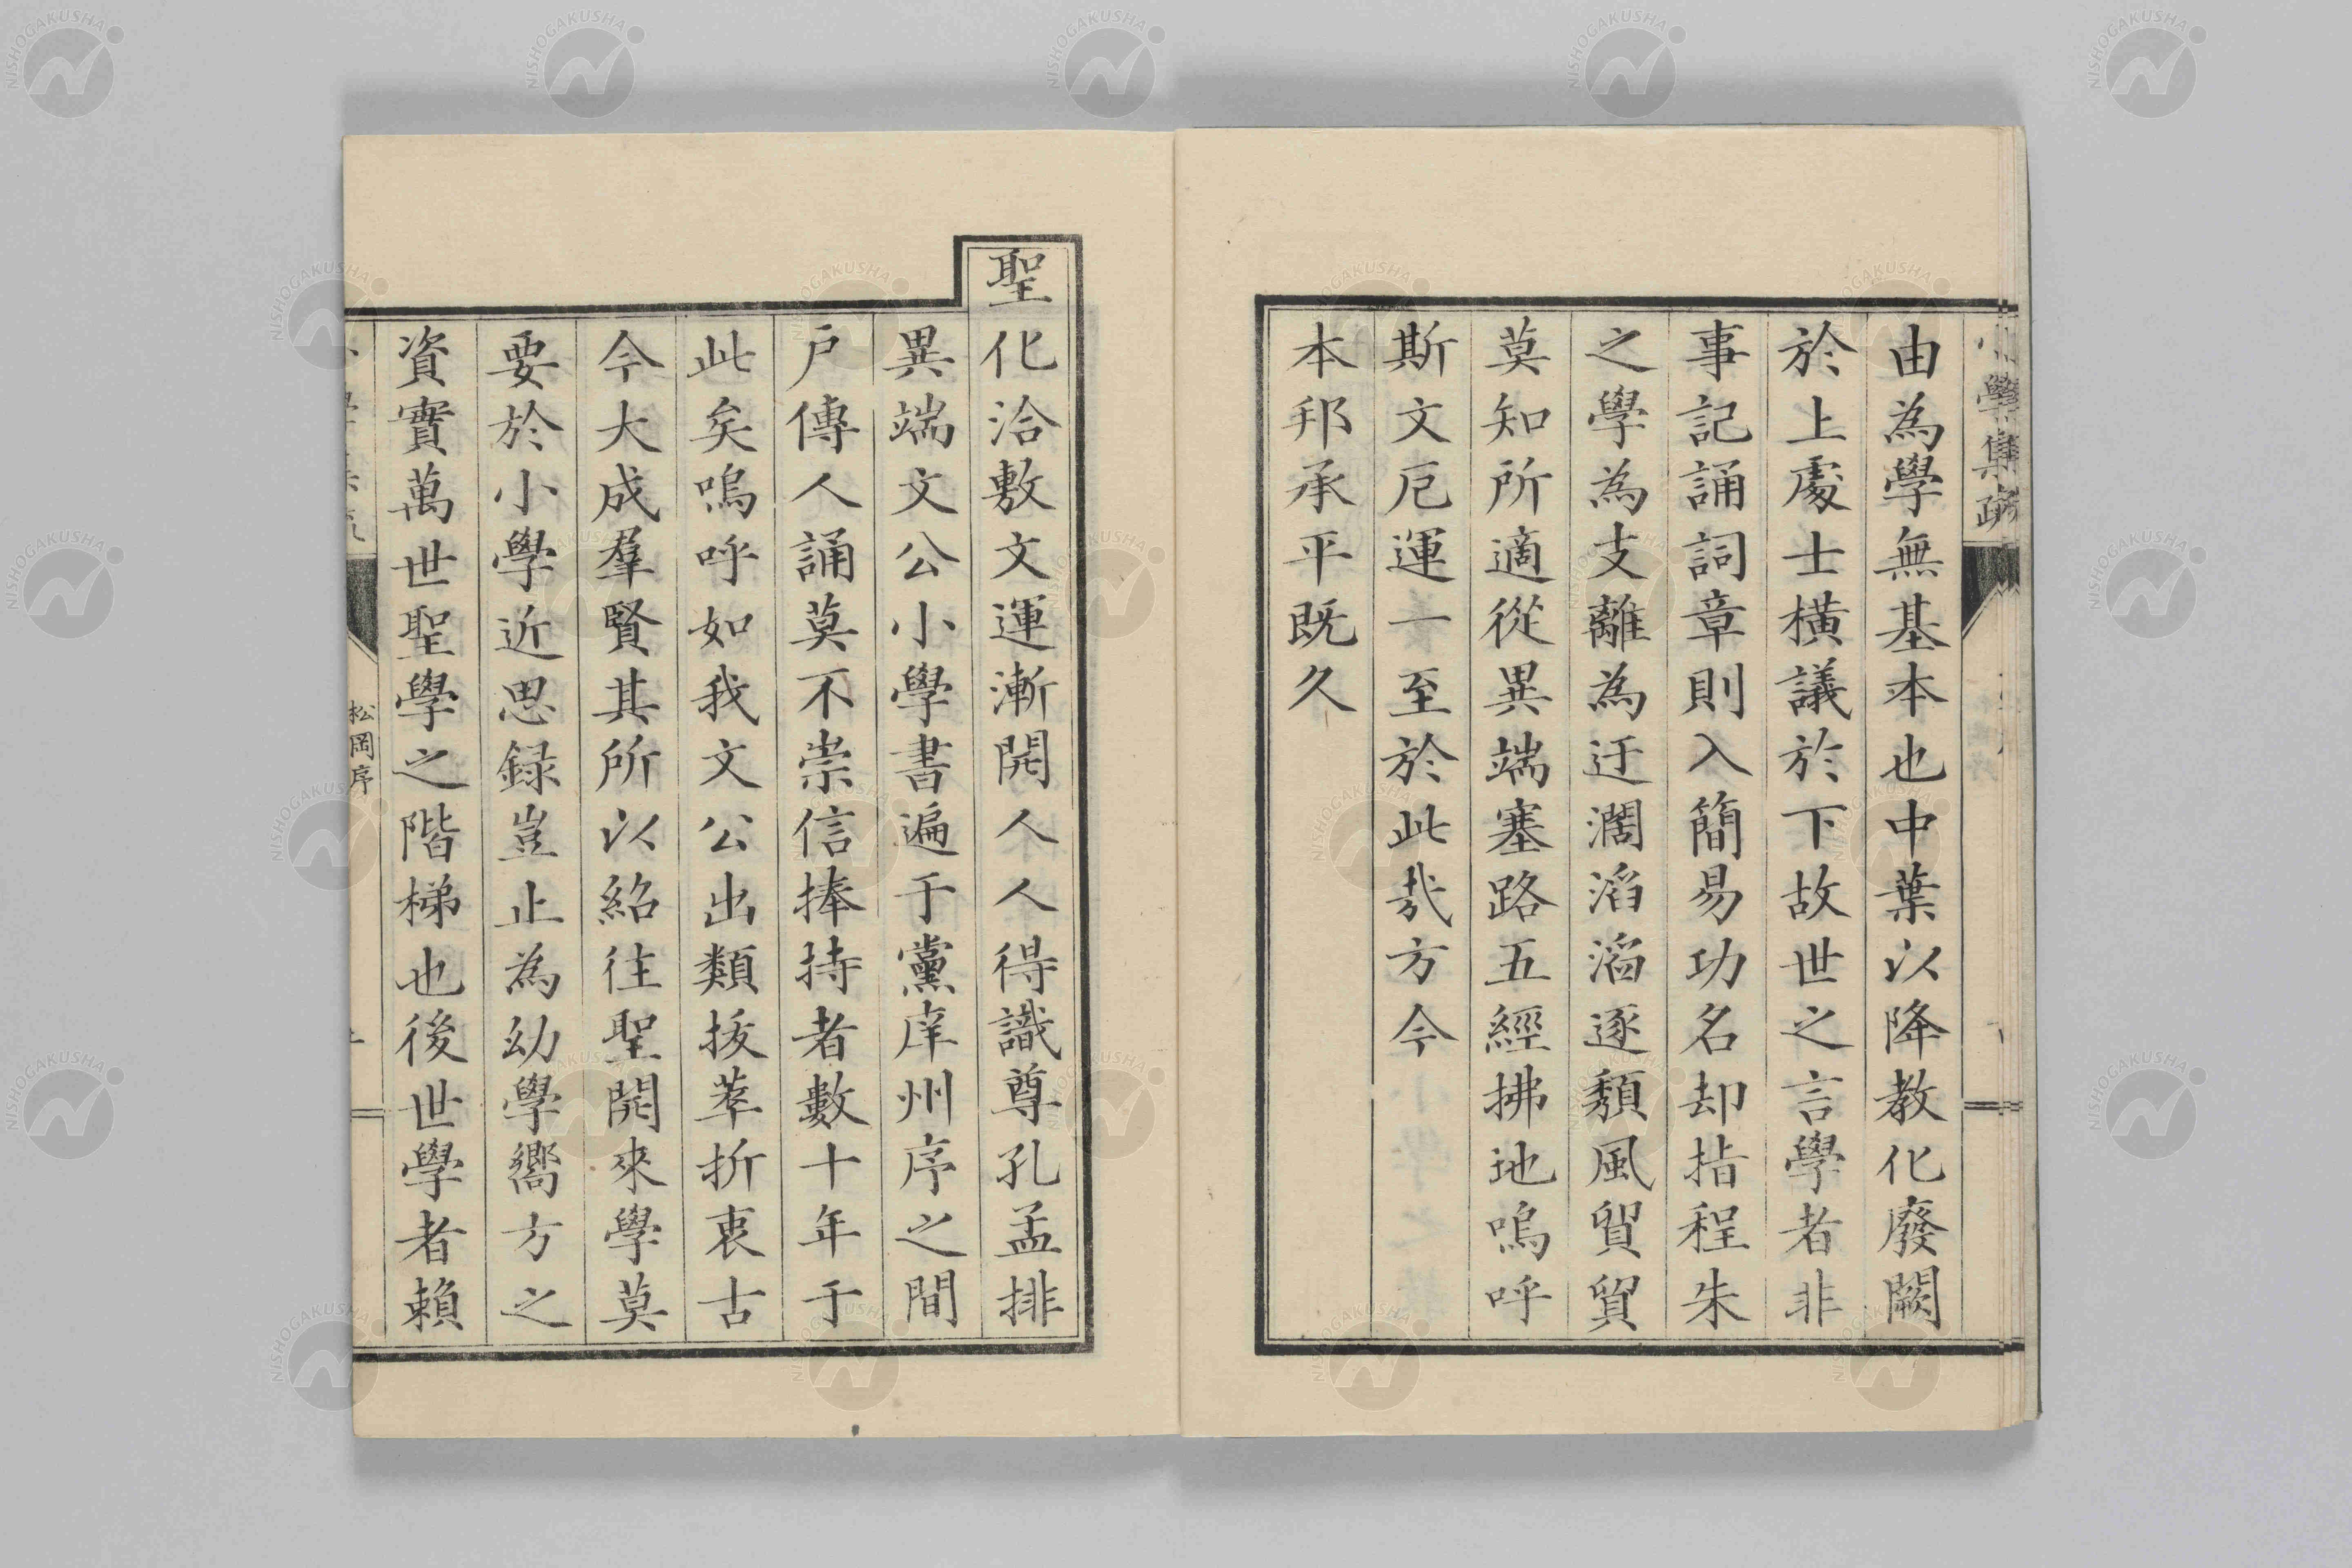 小學集疏
由為學無基本也中葉以降教化廢闕
於上處士橫議於下故世之言學者非
事記誦詞章則入簡易功名却指程朱
之學為支離為迂濶滔滔逐頹風貿貿
莫知所適從異端塞路五經拂地嗚呼
斯文厄運一至於此哉方今
本邦承平既久
聖化洽敷文運漸開人人得識尊孔孟排
異端文公小學書遍于黨庠州序之間
戶傳人誦莫不崇信捧持者數十年于
此矣嗚呼如我文公出類拔萃折衷古
今大成羣賢其所以紹往聖開來學莫
要於小學近思録豈止為幼學嚮方之
資實萬世聖學之階梯也後世學者賴
松岡序
NISHOGAKUSHA